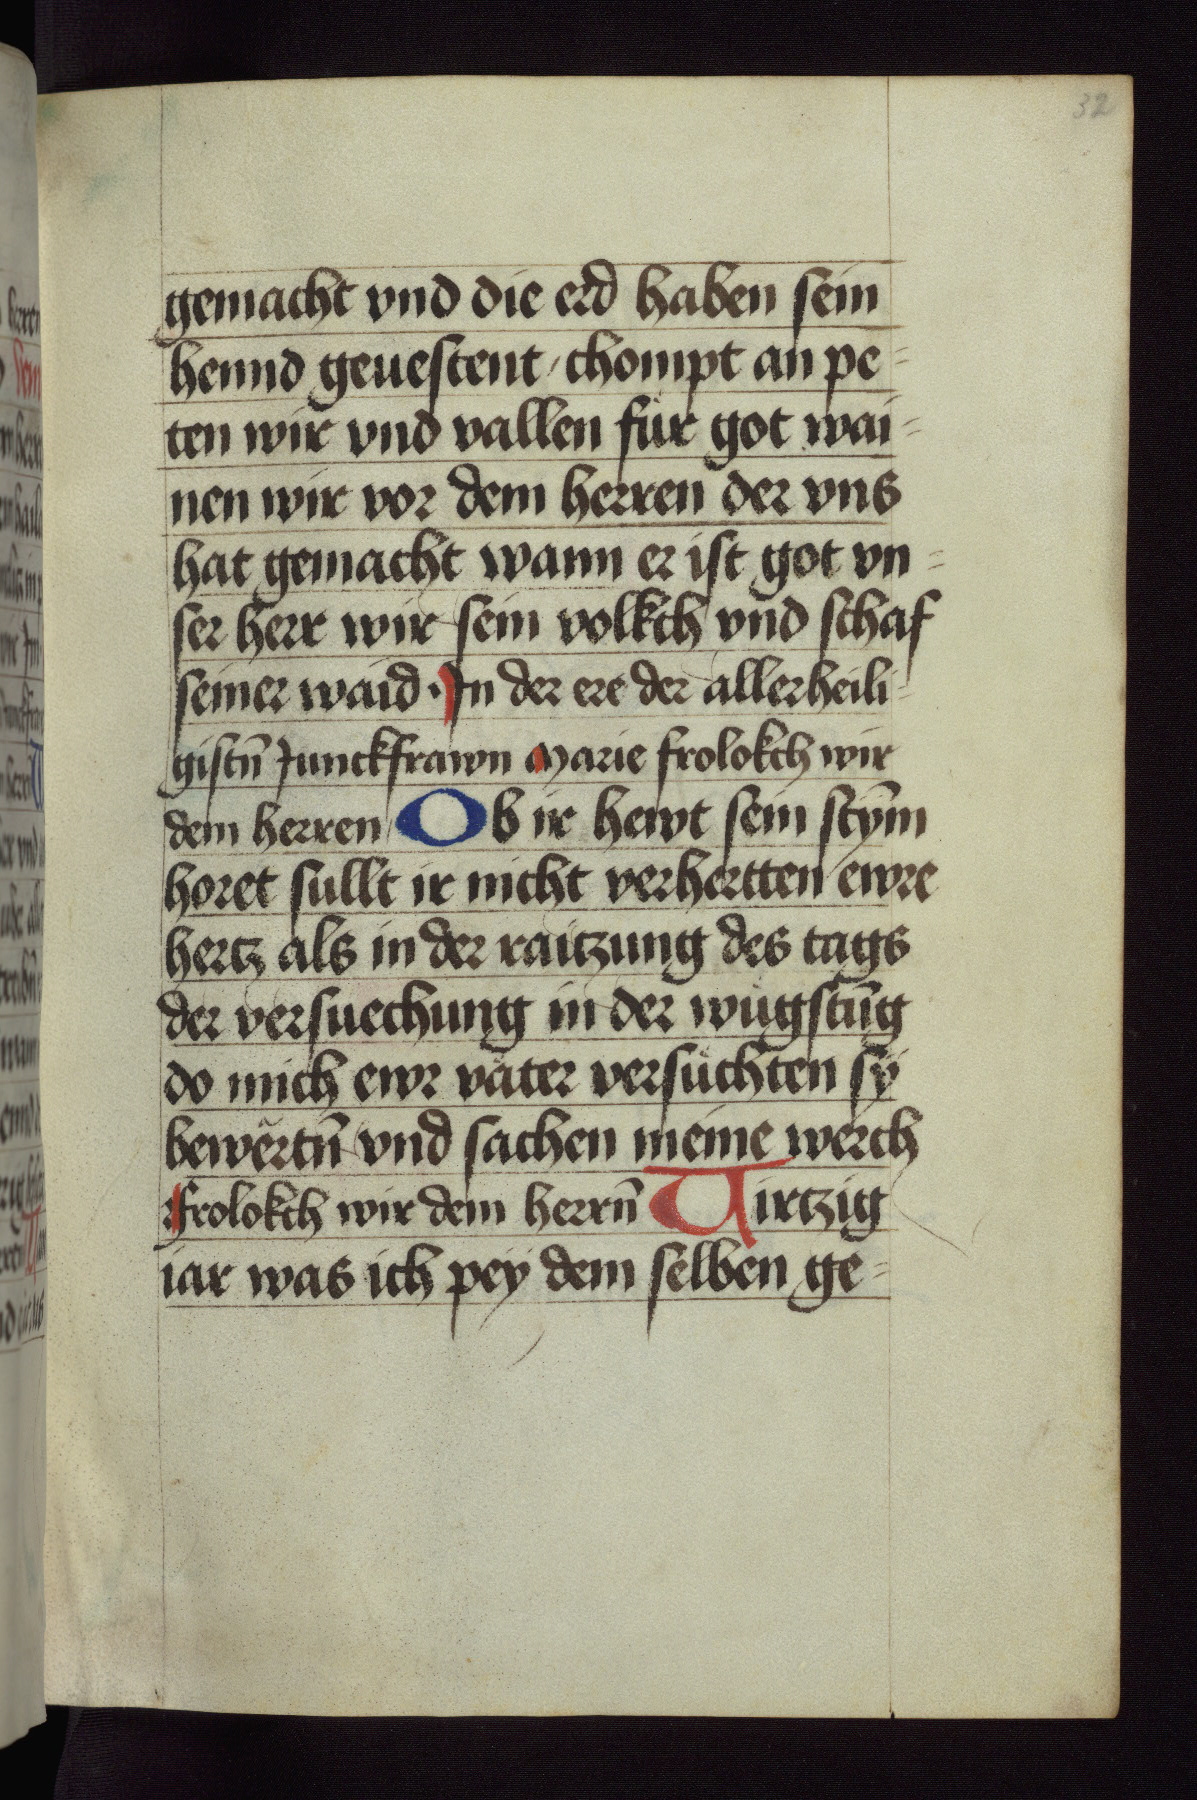 32
gemacht vnd die erd haben sein
hennd geuestent / chompt an pe-
ten wir vnd vallen für got wai-
nen wir vor dem herren der vns
hat gemacht wann er ist got vn-
ser herr wir sein volkch vnd schaf
seiner waid · In der ere der allerheili-
gistn̄ Junckfrawn Marie frolokch wir
dem herren Ob ir hewt sein stym̄
horet sullt ir nicht verhertten ewre
hertz als in der raitzung des tags
der versuechung in der wůgstūg
do mich ewr väter versůchten sÿ
bewërtn̄ vnd sachen meine werch
frolokch wir dem herrn̄ Virtzig
iar was ich pey dem selben ge-